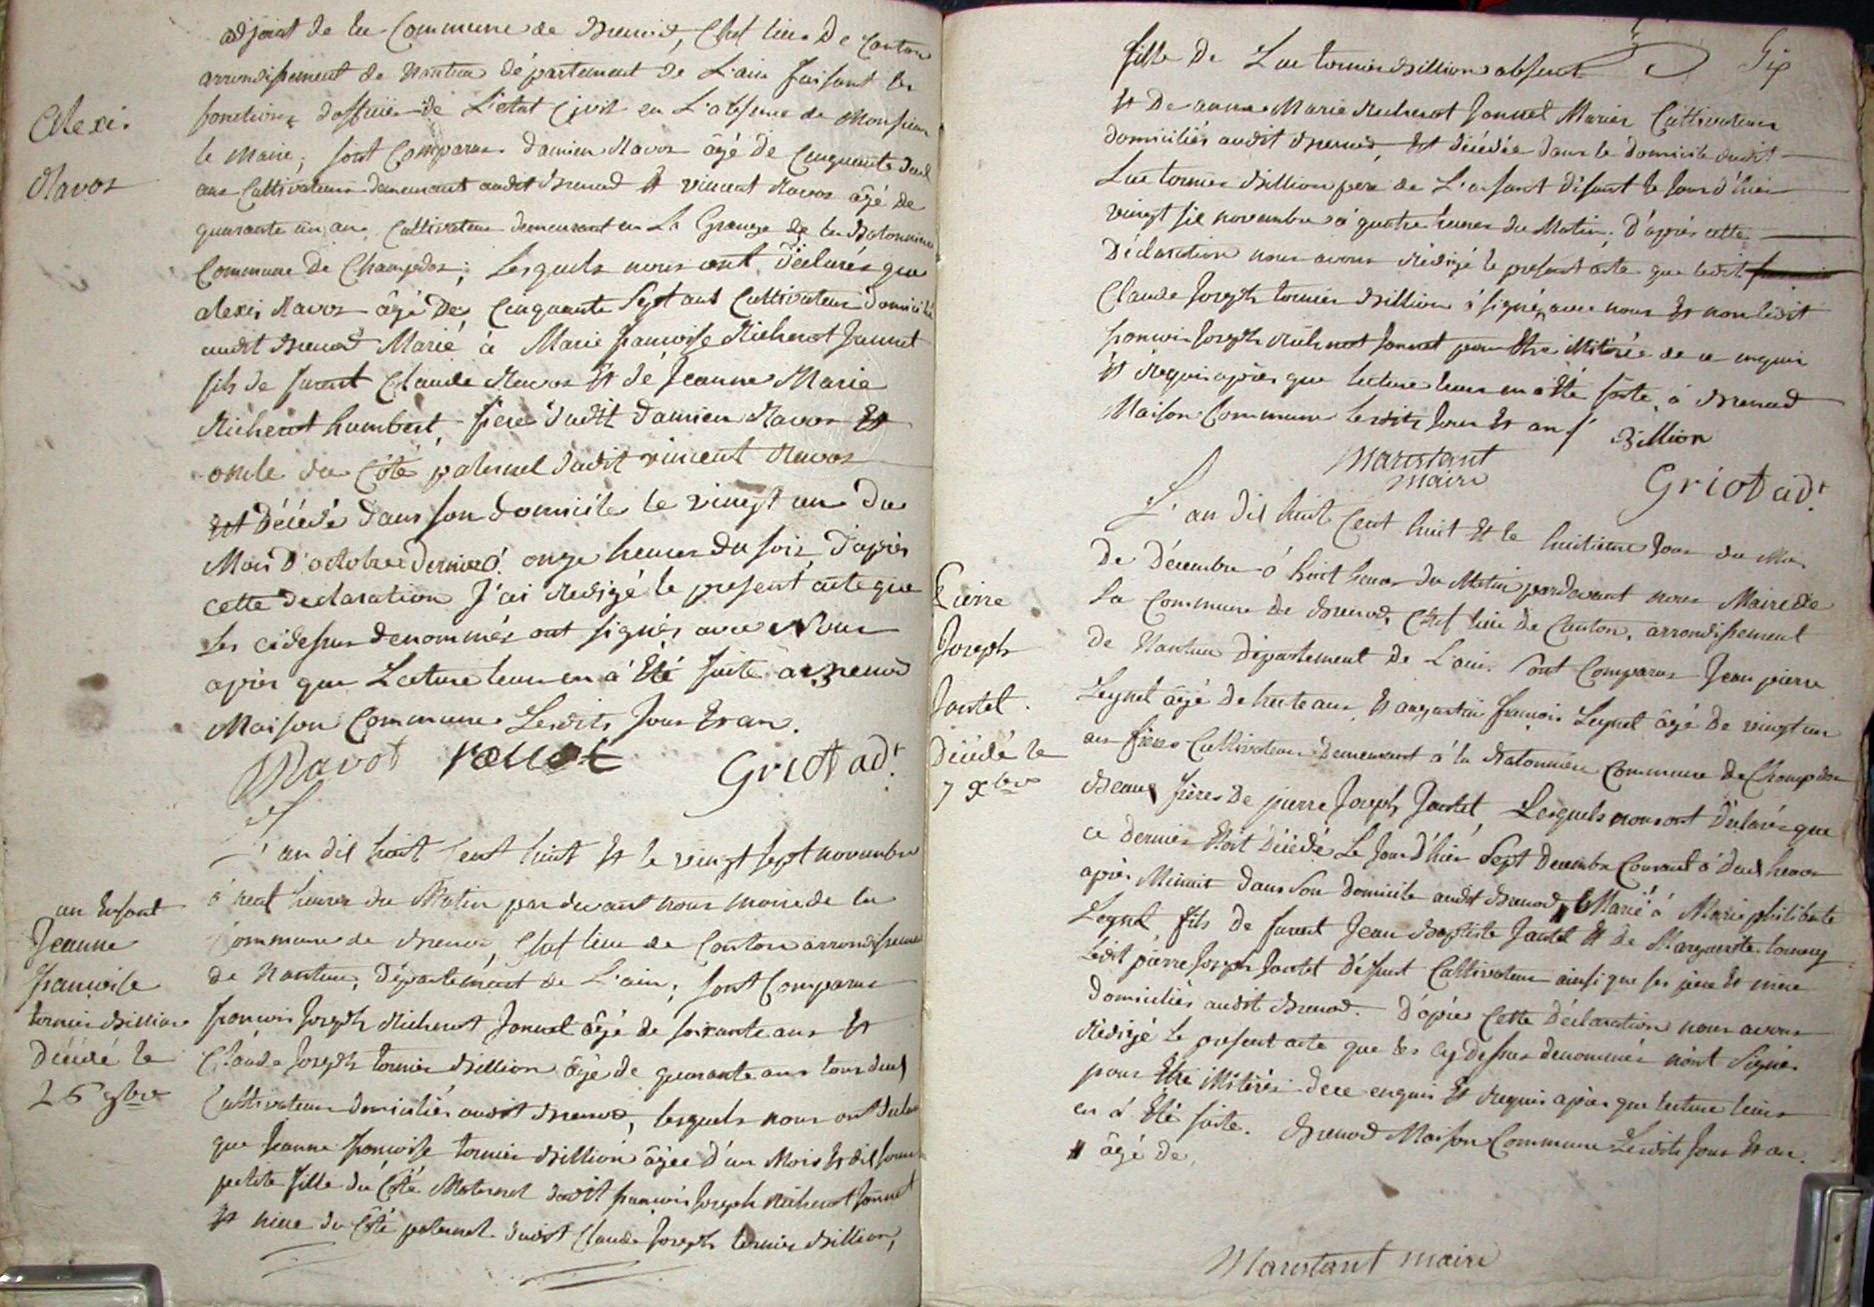 adjoint de la Commune de Brenod, Chef lieu De Canton
arrondissement de Nantua département de L'ain faisant les
fonctions d'officier de L'etat Civil en L'absence de Monsieur
le Maire, sont Comparus damien Ravoz âgé de Cinquante deux
ans Cultivateur demeurant audit Brenod et vincent Ravoz âgé de
quarante un ans Cultivateur demeurant en La Grange de la Ratonnière
Commune de Champdor; Lesquels nous ont déclarés que
alexis Ravoz âgé De Cinquante Sept ans Cultivateur domicilié
audit Brenod Marié à Marie françoise Richerot Jannet
fils de furent Claude Ravoz Et de Jeanne Marie
Richerot humbert, frere dudit damien Ravoz Et
oncle du Côté paternel dudit vincent Ravoz
Est Décédé dans son domicile le vingt un du
Mois D'octobre dernier à onze heures du soir, d'après
cette declaration J'ai Redigé le present acte que
Les cidessus denommés ont signés avec Nous
après que Lecture leur en à Eté faite à Brenod
Maison Commune Lesdits Jour Et an.
Ravot Ravot Griot adt.
Alexi.
Ravoz
L'an dil huit Cent huit Et le vingt sept novembre
à neuf heures du Matin par devant nous maire de la
Commune de Brenod, Chef lieu de Canton arrondissement
de Nantua, Département de L'ain; sont Comparus
françois Joseph Richerot Jannet âgé de soixante ans Et
Claude Joseph tornier Billion âgé de quarante ans tous deux
Cultivateurs domiciliés audit Brenod, lesquels nous ont déclaré
que Jeanne françoise tornier Billion âgée d'un Mois Et dil jours
petite fille du Côté Maternel dudit françois Joseph Richerot Jannet
Et niece du Côté paternel dudit Claude Joseph tornier Billion,
un Enfant
Jeanne
françoise
tornier Billion
Décédé le
26 9bre
fille De Luc tornier Billion absent
Et De anne Marie Richerot Jannet Mariés Cultivateurs
domiciliés audit Brenod, Est décédée dans le domicile dudit
Luc tornier Billion pere de L'enfant disant le Jour d'hier
vingt sil novembre à quatre heures du Matin. D'après cette
Déclaration nous avons Rédigé le present acte que ledit
Claude Joseph tornier Billion à signé, avec nous Et non ledit
françois Joseph Richerot Jannet pour Etre illitéré de ce enquis
Et Requis après que lecture leur en à Eté faite, à Brenod
Maison Commune Lesdits Jour Et an
Billion
Maristant
maire
Griot adt.
L'an dil huit Cent huit Et le huitieme Jour du Mois
De Décembre à huit heures du Matin pardevant nous Maire de
La Commune de Brenod, Chef lieu De Canton, arrondissement
de Nantua Département de L'ain. Sont Comparus Jean pierre
Leynet âgé de trente ans, Et augustin françois Leynet âgé de vingt un
ans freres Cultivateurs Demeurant à la Ratonnière Commune de Champdor
Beaux frères De pierre Joseph Jantet Lesquels nous ont Déclarés que
ce dernier Etoit Décédé Le Jour d'hier Sept Decembre Courant à deux heures
après Minuit dans son domicile audit Brenod, Marié à Marie philiberte
Leynet fils de furent Jean Baptiste Jantet Et de Marguerite
Ledit pierre Joseph Jantet Défunt Cultivateur ainsi que ses père Et mère
Domiciliés audit Brenod. D'après Cette Déclaration nous avons
Rédigé Le present acte que les cy dessus denommés n'ont Signés
pour Etre illitérés de ce enquis Et Requis après que lecture leur
en à Eté faite. Brenod Maison Commune Lesdits Jour Et an.
âgé de
Pierre
Joseph
Jantet.
Décédé le
7 Xbre
Maristant maire